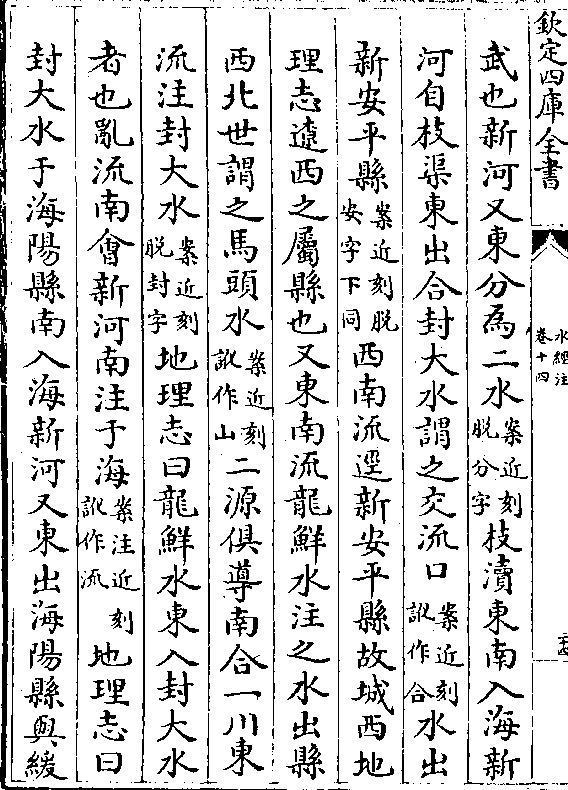 欽定四庫全書
水經注
卷十四
武也新河又東分為二水案近刻脫分字枝瀆東南入海新
河自枝渠東出合封大水謂之交流口案近刻訛作合水出
新安平縣案近刻脫安字下同西南流逕新安平縣故城西地
理志遼西之屬縣也又東南流龍鮮水注之水出縣
西北世謂之馬頭水案近刻訛作山二源俱導南合一川東
流注封大水案近刻脫封字地理志曰龍鮮水東入封大水
者也亂流南會新河南注于海案注近刻訛作流地理志曰
封大水于海陽縣南入海新河又東出海陽縣與緩